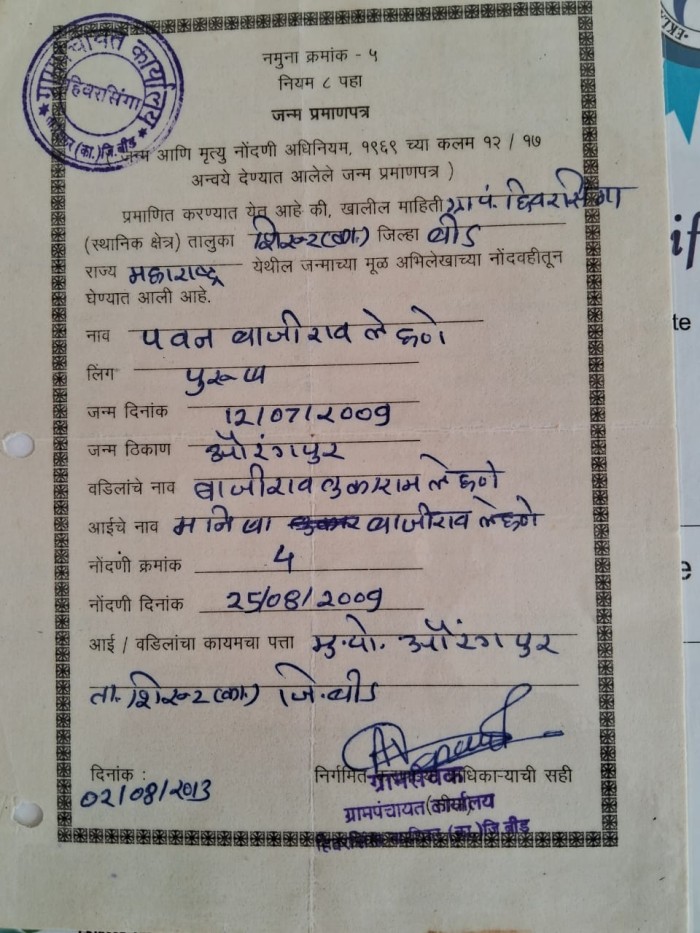 ग्रामपंचायत कार्यालय
हिवरसिंगा
(का.) जि. बीड
नमुना क्रमांक - ५
नियम ८ पहा
जन्म प्रमाणपत्र
( जन्म आणि मृत्यु नोंदणी अधिनियम, १९६९ च्या कलम १२ / १७
अन्वये देण्यात आलेले जन्म प्रमाणपत्र )
प्रमाणित करण्यात येत आहे की, खालील माहिती ग्रा.पं. हिवरसिंगा
(स्थानिक क्षेत्र) तालुका शिरूर (का.) जिल्हा बीड
राज्य महाराष्ट्र येथील जन्माच्या मूळ अभिलेखाच्या नोंदवहीतून
घेण्यात आली आहे.
नाव पवन बाजीराव लेहणे
लिंग पुरूष
जन्म दिनांक 12/07/2009
जन्म ठिकाण औरंगपुर
वडिलांचे नाव बाजीराव तुकाराम लेहणे
आईचे नाव मनिषा बाजीराव लेहणे
नोंदणी क्रमांक 4
नोंदणी दिनांक 25/08/2009
आई / वडिलांचा कायमचा पत्ता मु.पो. औरंगपुर
ता. शिरूर (का.) जि. बीड
दिनांक :
02/08/2013
निर्गमित अधिकाऱ्याची सही
ग्रामसेवक
ग्रामपंचायत कार्यालय
(का.) जि. बीड